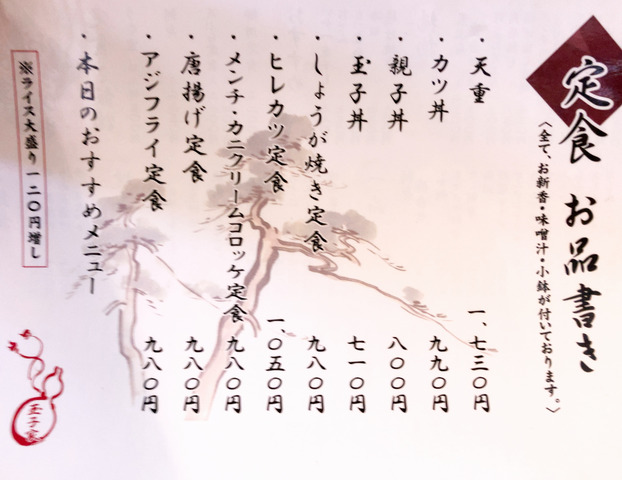 定食 お品書き
〈全て、お新香・味噌汁・小鉢が付いております。〉
・天重 一、七三〇円
・カツ丼 九九〇円
・親子丼 八〇〇円
・玉子丼 七一〇円
・しょうが焼き定食 九八〇円
・ヒレカツ定食 一、〇五〇円
・メンチ・カニクリームコロッケ定食 九八〇円
・唐揚げ定食 九八〇円
・アジフライ定食 九八〇円
・本日のおすすめメニュー
※ライス大盛り一二〇円増し
玉子家